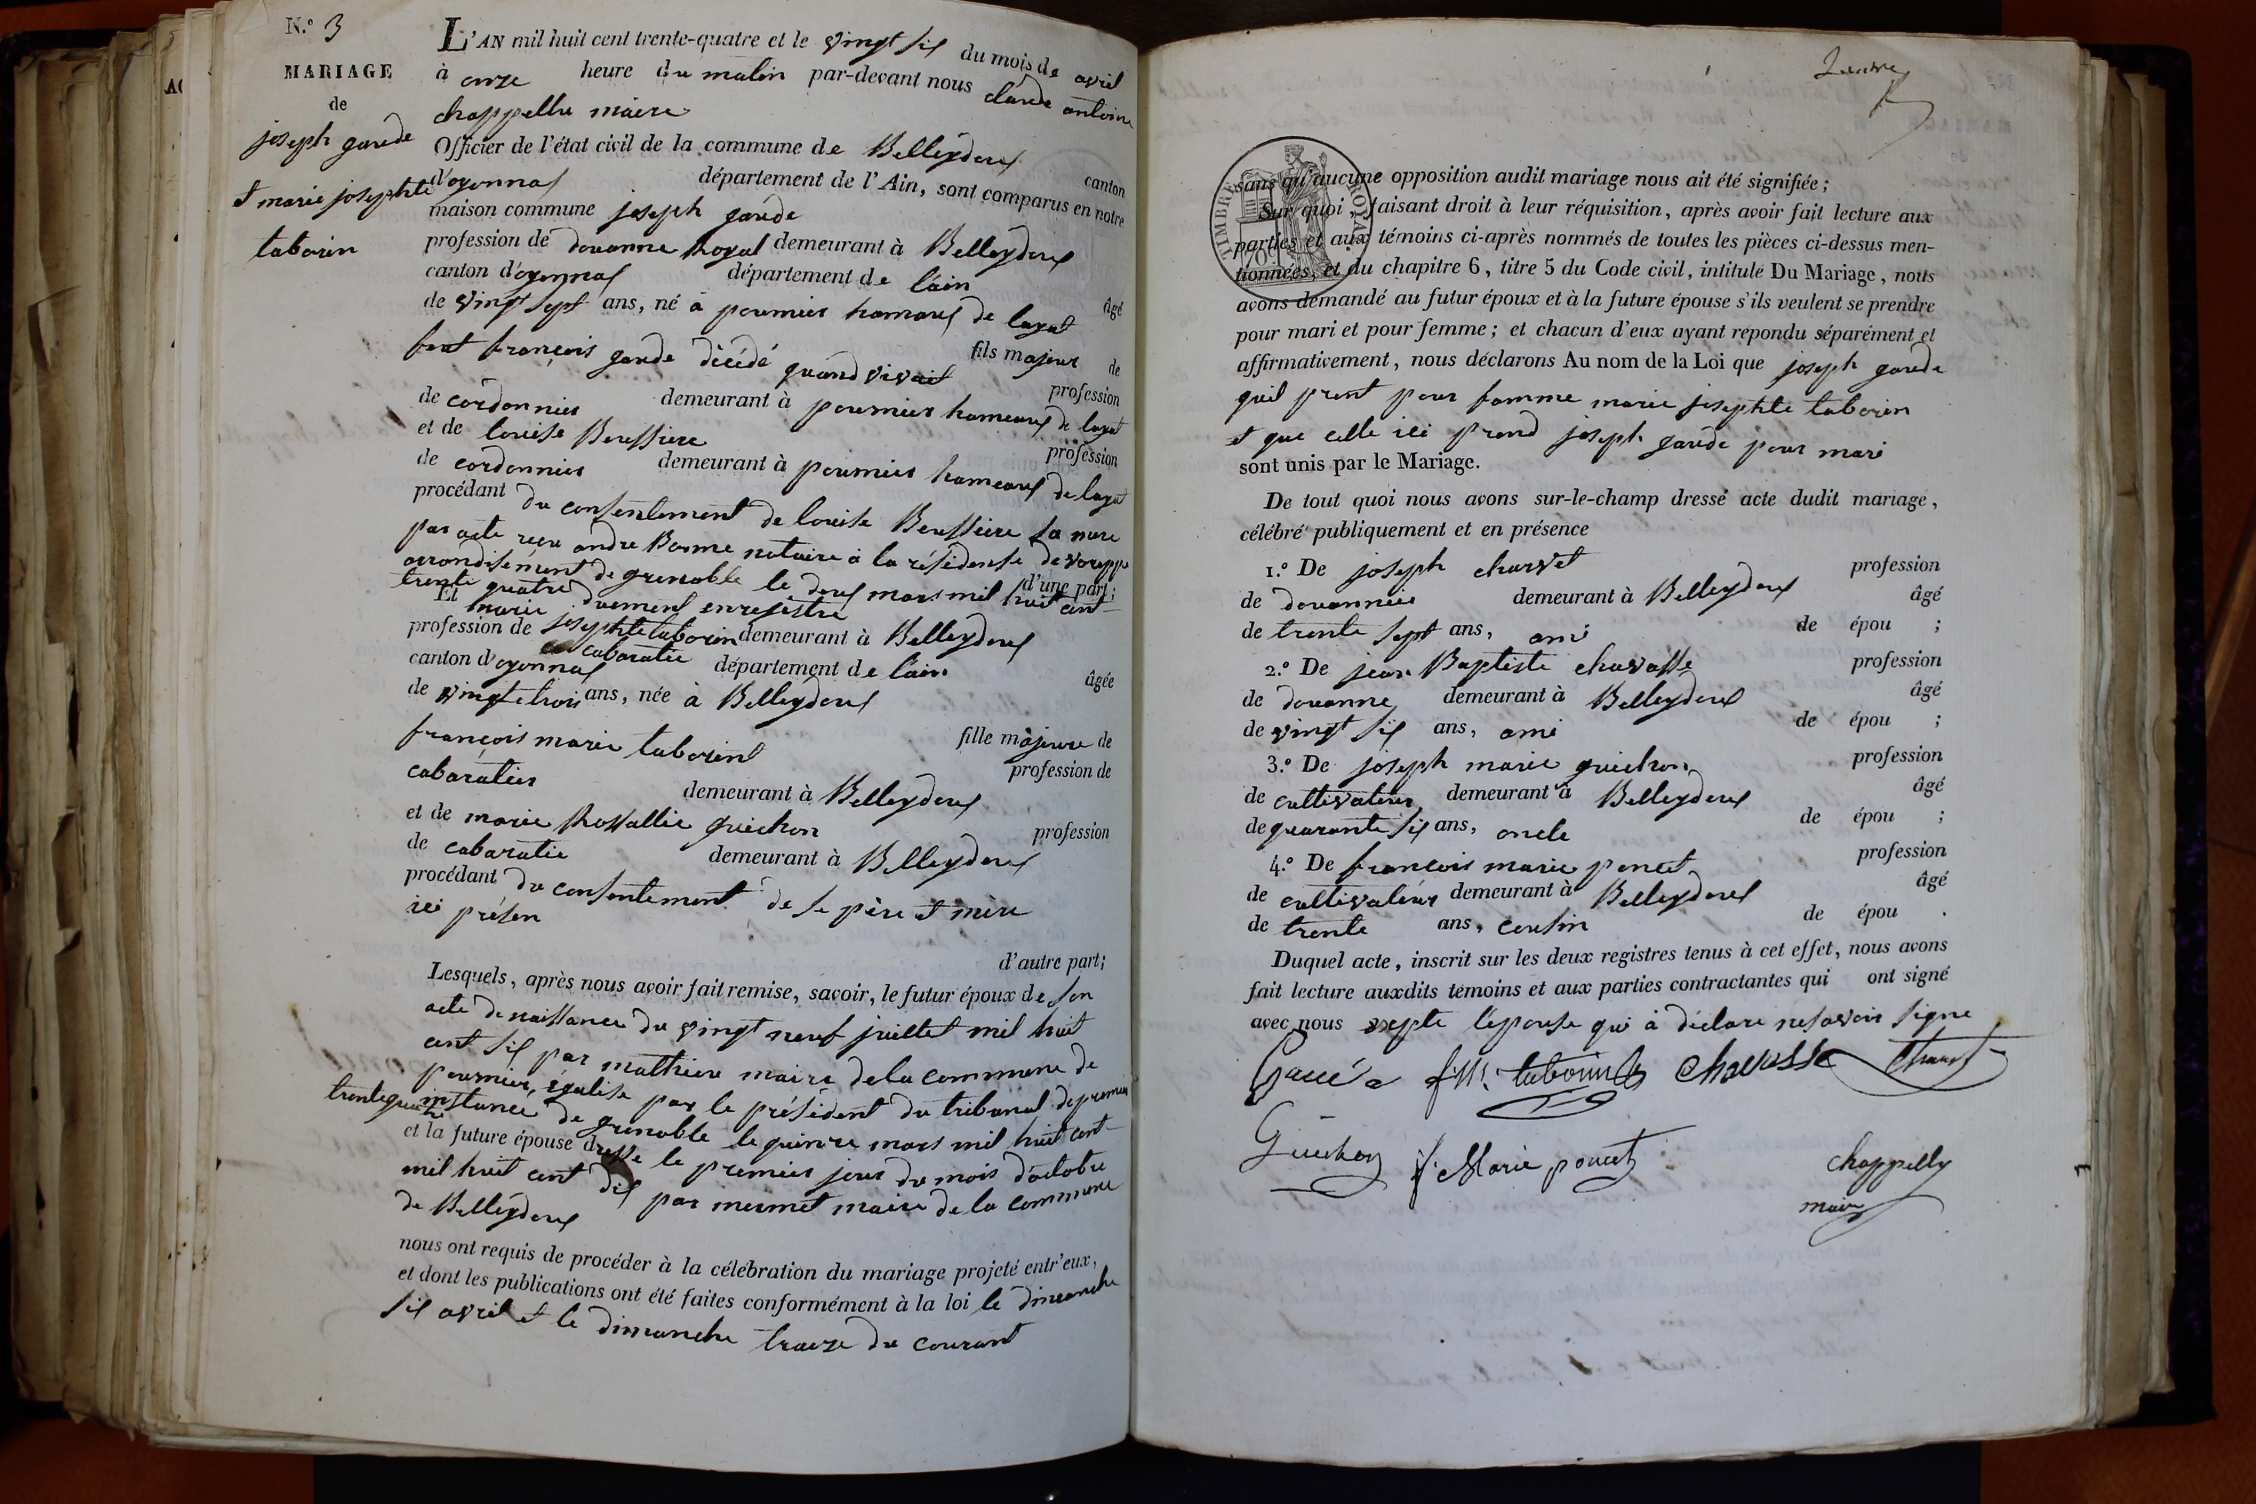 N.º 3
MARIAGE
de
joseph garéde
et marie josephte
taborin
L'AN mil huit cent trente-quatre et le vingt six du mois de avril
à onze heure du matin par-devant nous claude antoine
chappellu maire
Officier de l'état civil de la commune de Belleydoux canton
d'oyonnax département de l'Ain, sont comparus en notre
maison commune joseph garéde
profession de douanne royal demeurant à Belleydoux
canton d'oyonnax département de l'ain âgé
de vingt sept ans, né à poumier hamaux de
fils majeur de
feut françois garde décédé quand vivait profession
de cordonnier demeurant à poumier hameaux de
et de louise Boussiere profession
de cordonnier demeurant à poumier hameaux de
procédant du consentement de louise Boussiere sa mere
par acte reçu andre Borme notaire à la résidense de voreppe
arrondisément de grenoble le deux mars mil huit cent
trente quatre duement enregistré d'une part;
Et marie josephte taborin
profession de cabaratie demeurant à Belleydoux
canton d'oyonnax département de l'ain âgée
de vingt trois ans, née à Belleydoux
fille majeure de
françois marie taborint profession de
cabaratier demeurant à Belleydoux
et de marie Rossallie guichon profession
de cabaratie demeurant à Belleydoux
procédant du consentement de se père et mère
ici présen
d'autre part;
Lesquels, après nous avoir fait remise, savoir, le futur époux de son
acte de naissance du vingt neuf juillet mil huit
cent six par mathieu maire de la commune de
poumier, égalisé par le président du tribunal de premier
instance de grenoble le quinze mars mil huit cent
trente quatre
et la future épouse dresse le premier jour du mois d'octobre
mil huit cent dix par mermet maire de la commune
de Belleydoux
nous ont requis de procéder à la célébration du mariage projeté entr'eux,
et dont les publications ont été faites conformément à la loi le dimanche
six avril et le dimanche traize du courant
TIMBRE ROYAL
sans qu'aucune opposition audit mariage nous ait été signifiée;
Sur quoi, faisant droit à leur réquisition, après avoir fait lecture aux
parties et aux témoins ci-après nommés de toutes les pièces ci-dessus men-
tionnées, et du chapitre 6, titre 5 du Code civil, intitulé Du Mariage, nous
avons demandé au futur époux et à la future épouse s'ils veulent se prendre
pour mari et pour femme; et chacun d'eux ayant répondu séparément et
affirmativement, nous déclarons Au nom de la Loi que joseph garéde
quil prent pour famme marie josephte taborin
et que celle ici prend joseph garéde pour mari
sont unis par le Mariage.
De tout quoi nous avons sur-le-champ dressé acte dudit mariage,
célébré publiquement et en présence
1.º De joseph charvet profession
de douannier demeurant à Belleydoux âgé
de trente sept ans, ami de épou ;
2.º De jean Baptiste chavasse profession
de douanne demeurant à Belleydoux âgé
de vingt six ans, ami de épou ;
3.º De joseph marie guichon profession
de cultivateur demeurant à Belleydoux âgé
de quarante six ans, oncle de épou ;
4.º De françois marie poncet profession
de cultivateur demeurant à Belleydoux âgé
de trente ans, cousin de épou .
Duquel acte, inscrit sur les deux registres tenus à cet effet, nous avons
fait lecture auxdits témoins et aux parties contractantes qui ont signé
avec nous exepte l'épouse qui à déclare ne savoir signe
taborin chavasse Charvet
Guichon f. Marie poncet chappelly
maire